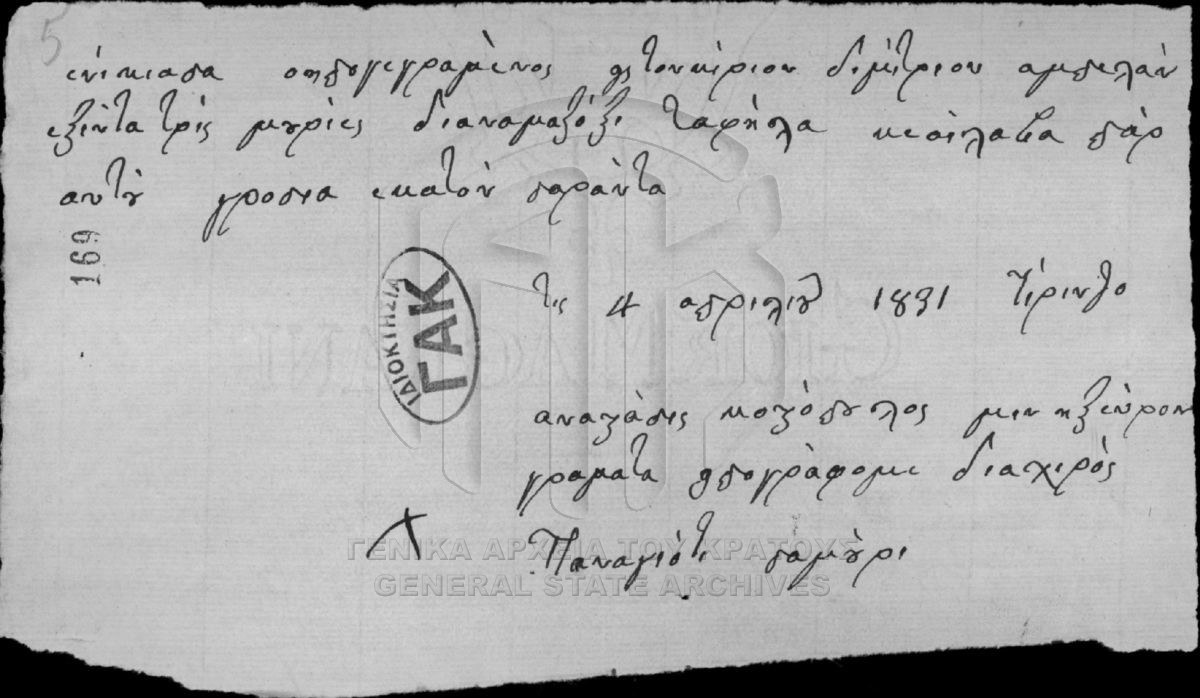 5
ενικιασα οπογεγραμένος στονκίριον διμίτριον αμπελάν
εξίντα τρίς μουριές διαναμαζόξι ταφίλα κεοίλαβα παρ
αυτού γροσια εκατόν σαράντα
169
τις 4 απριλιου 1831 τίρινθο
ΙΔΙΟΚΤΗΣΙΑ
ΓΑΚ
αναστάσις κοζόπουλος μιν ηξεύρον
γραματα υπογράφομε διαχιρός
Παναγιότι σαμούρι
ΓΕΝΙΚΑ ΑΡΧΕΙΑ ΤΟΥ ΚΡΑΤΟΥΣ
GENERAL STATE ARCHIVES